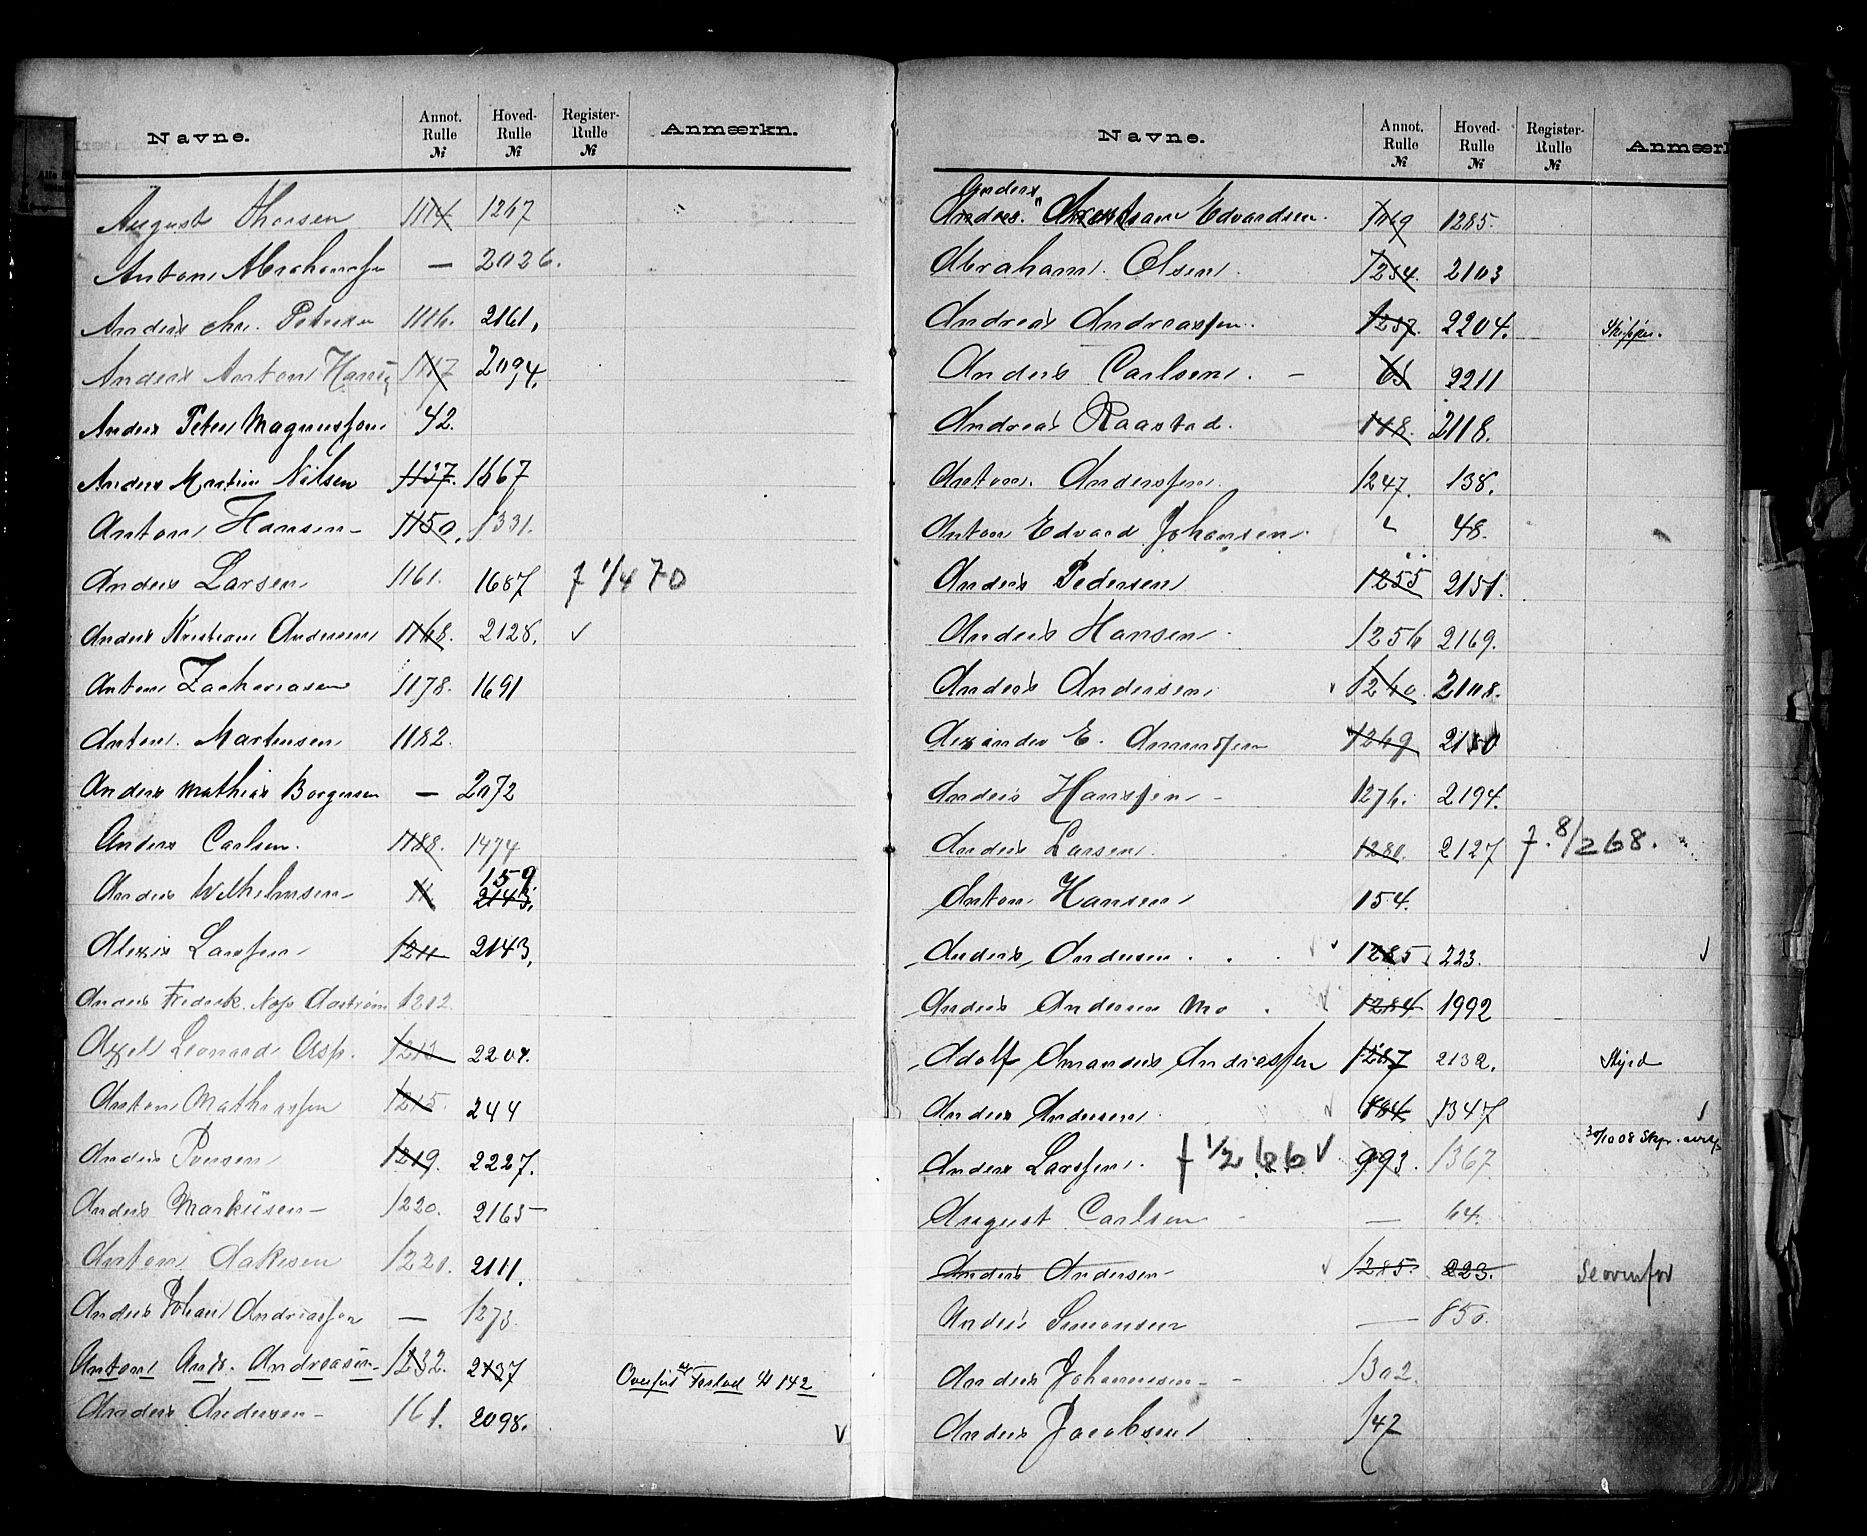 Navne. Annot. Rulle № Hoved- Rulle № Register- Rulle № Anmærkn.
August Thorsen 1114 1267
Anton Abrahamsen — 2026.
Anders Chr. Petersen 1116. 2161.
Anders Anton Hansen 1117 2094.
Anders Peter Magnussen 42.
Anders Martin Nilsen 1137. 1667
Anton Hansen - 1150. 1331.
Anders Larsen 1161. 1687 f 1/4 70
Anders Kristian Andersen 1168. 2128. v
Anton Zachariasen 1178. 1691
Anton Martinsen 1182.
Anders Mathias Borgersen — 2072
Anders Carlsen. 1188. 1474
Anders Wilhelmsen - 11 159 2143.
Alexis Larssen 1211 2143.
Anders Fredrik 1212.
Axel Leonard Asp. 1213 2204.
Anton Mathiassen 1215. 244
Anders Poulsen 1219. 2227.
Anders Markusen - 1220. 2165
Anton Aakesen 1220. 2111.
Anders Johan Andreassen — 1273.
Anton Andr. Andreasen - 1232. 2137 Overført Fastad № 142
Anders Andersen - 161. 2098. v
Navne. Annot. Rulle № Hoved- Rulle № Register- Rulle № Anmærk
Anders
Anders " Christian Edvardsen. 1069 1285.
Abraham Olsen. 1234. 2103
Andreas Andreassen. 1237. 2204. Skipper.
Anders Carlsen. - 65 2211
Andreas Raastad. 118. 2118.
Anton Anderssen. 1247. 138.
Anton Edvard Johansen. 48.
Anders Pedersen 1255 2151.
Anders Hansen 1256 2169.
Anders Andersen v 1260. 2108.
Alexander E. Amundsen 1269 2150
Anders Hanssen - 1276. 2194.
Anders Larsen 1280. 2127 f. 8/2 68.
Anton Hansen 154.
Anders Andersen . . v 1285 223. v
Anders Andersen Mo . v 1284 1992
Adolf Amandus Andreassen 1287 2132. Skjød
Anders Andersen v 184. 1347 v
Anders Larssen. f 1/2 66 v 993. 1367 30/10 08 Skpr.
August Carlsen - — 64.
Anders Andersen - v 1285. 223.
Anders Simonsen — 850.
Anders Johannesen - - 1302.
Anders Jacobsen 147